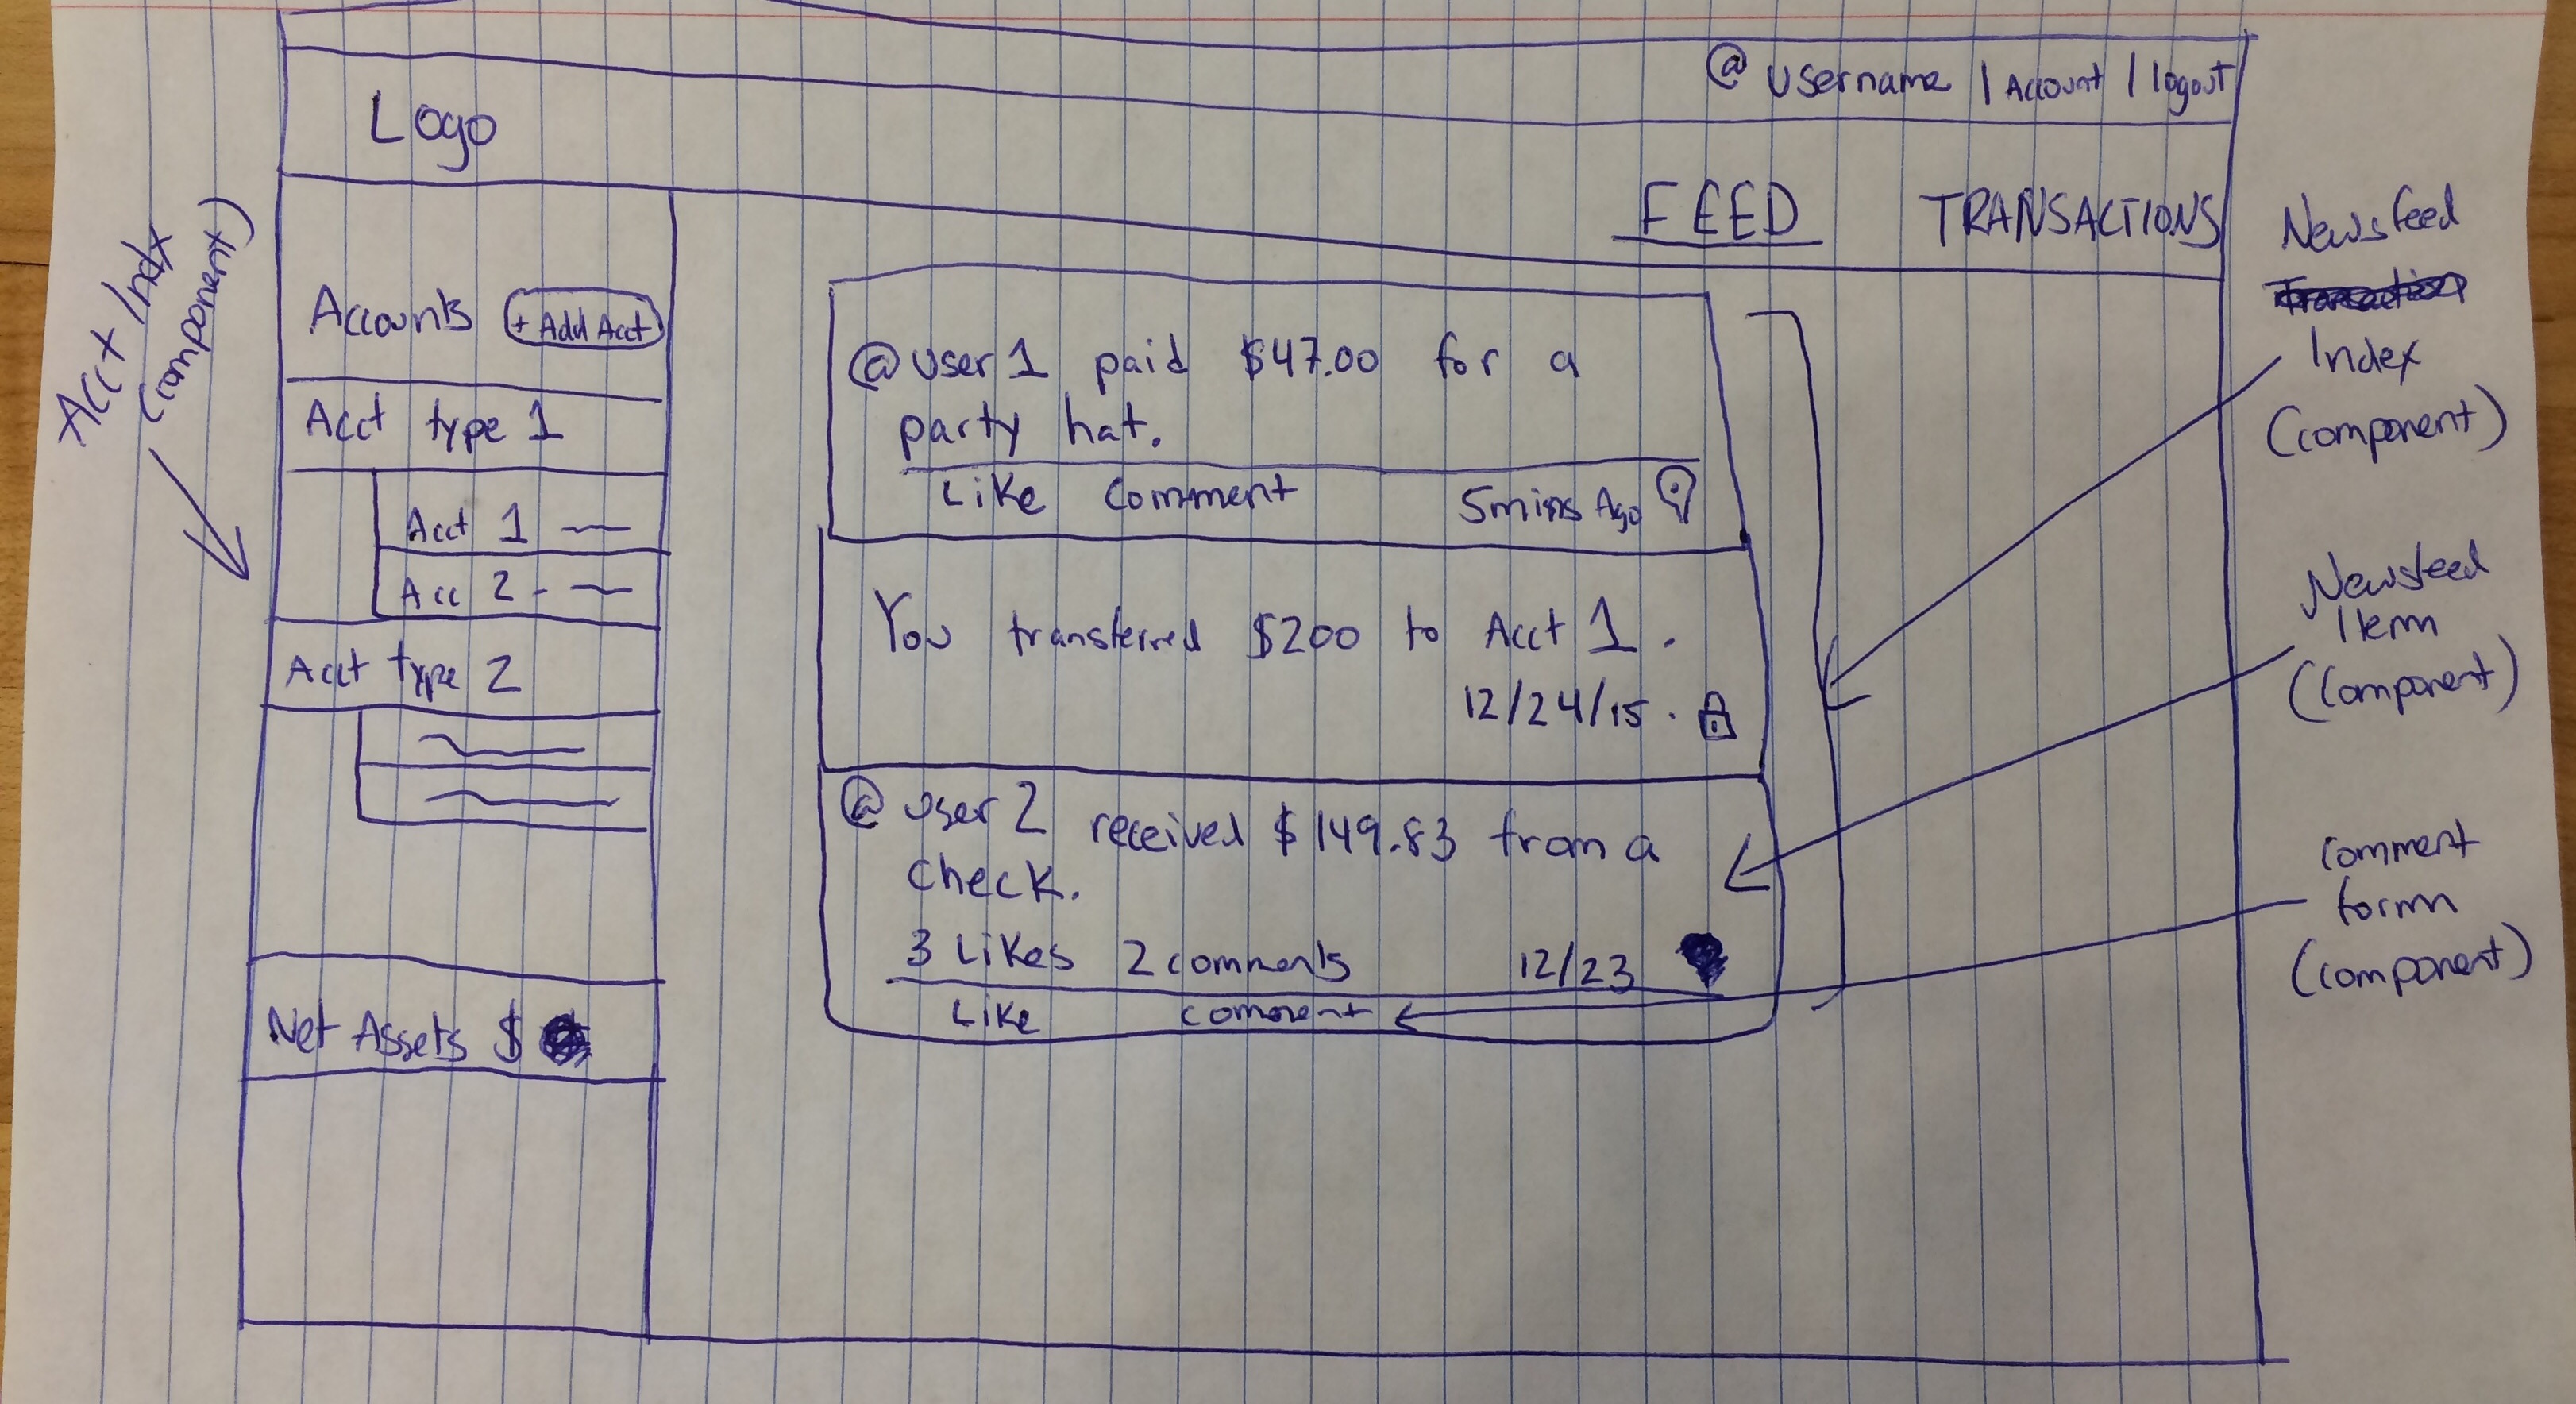 @ username | Account | logout
Logo
FEED TRANSACTIONS
Acct Indx
(component)
Accounts + Add Acct
Acct type 1
Acct 1
Acc 2 -
Acct type 2
Net Assets $
@user 1 paid $47.00 for a
party hat.
Like Comment 5 mins Ago
You transferred $200 to Acct 1.
12/24/15.
@user 2 received $149.83 from a
check.
3 Likes 2 comments 12/23
Like comment
Newsfeed
Index
(component)
Newsfeed
Item
(component)
comment
form
(component)